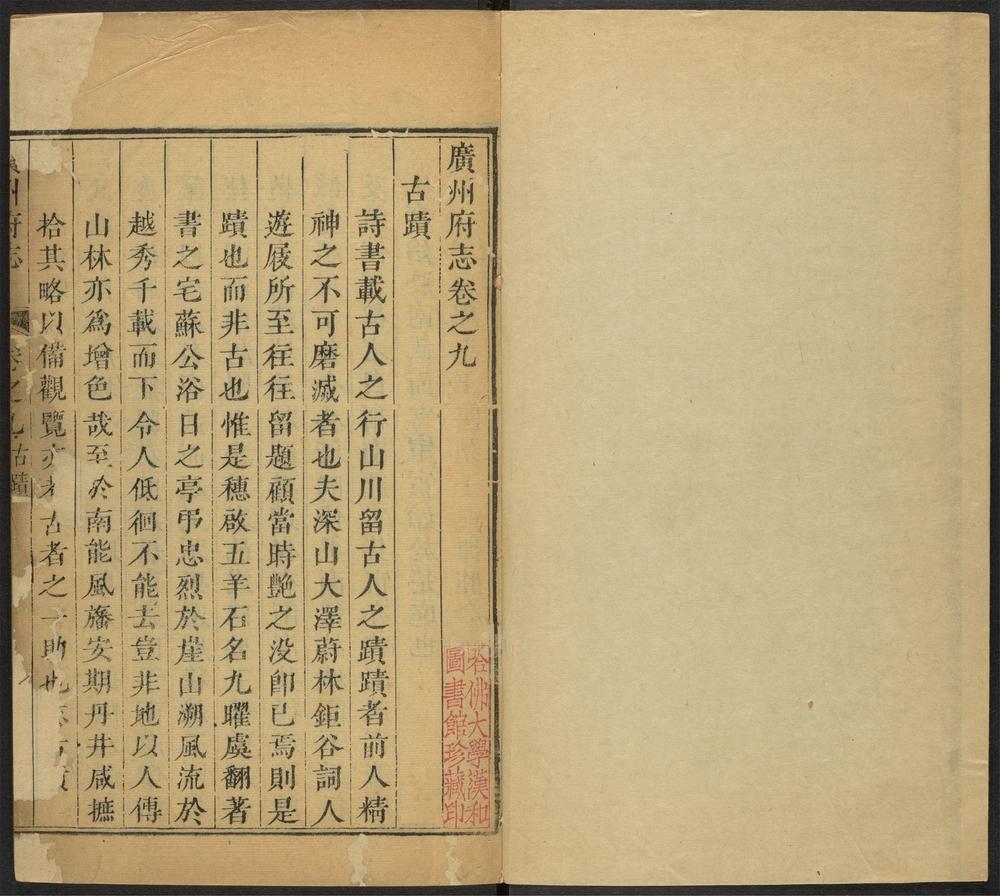 廣州府志卷之九
古蹟
詩書載古人之行山川留古人之蹟蹟者前人精
神之不可磨滅者也夫深山大澤蔚林鉅谷詞人
遊屐所至往往留題顧當時艷之没卽已焉則是
蹟也而非古也惟是穗啟五羊石名九曜虞翻著
書之宅蘇公浴日之亭弔忠烈於崖山溯風流於
越秀千載而下令人低徊不能去豈非地以人傳
山林亦爲增色哉至於南能風旛安期丹井咸摭
拾其略以備觀覽亦 古者之一助也 古
州府志 卷之九古蹟
哈佛大學漢和
圖書館珍藏印